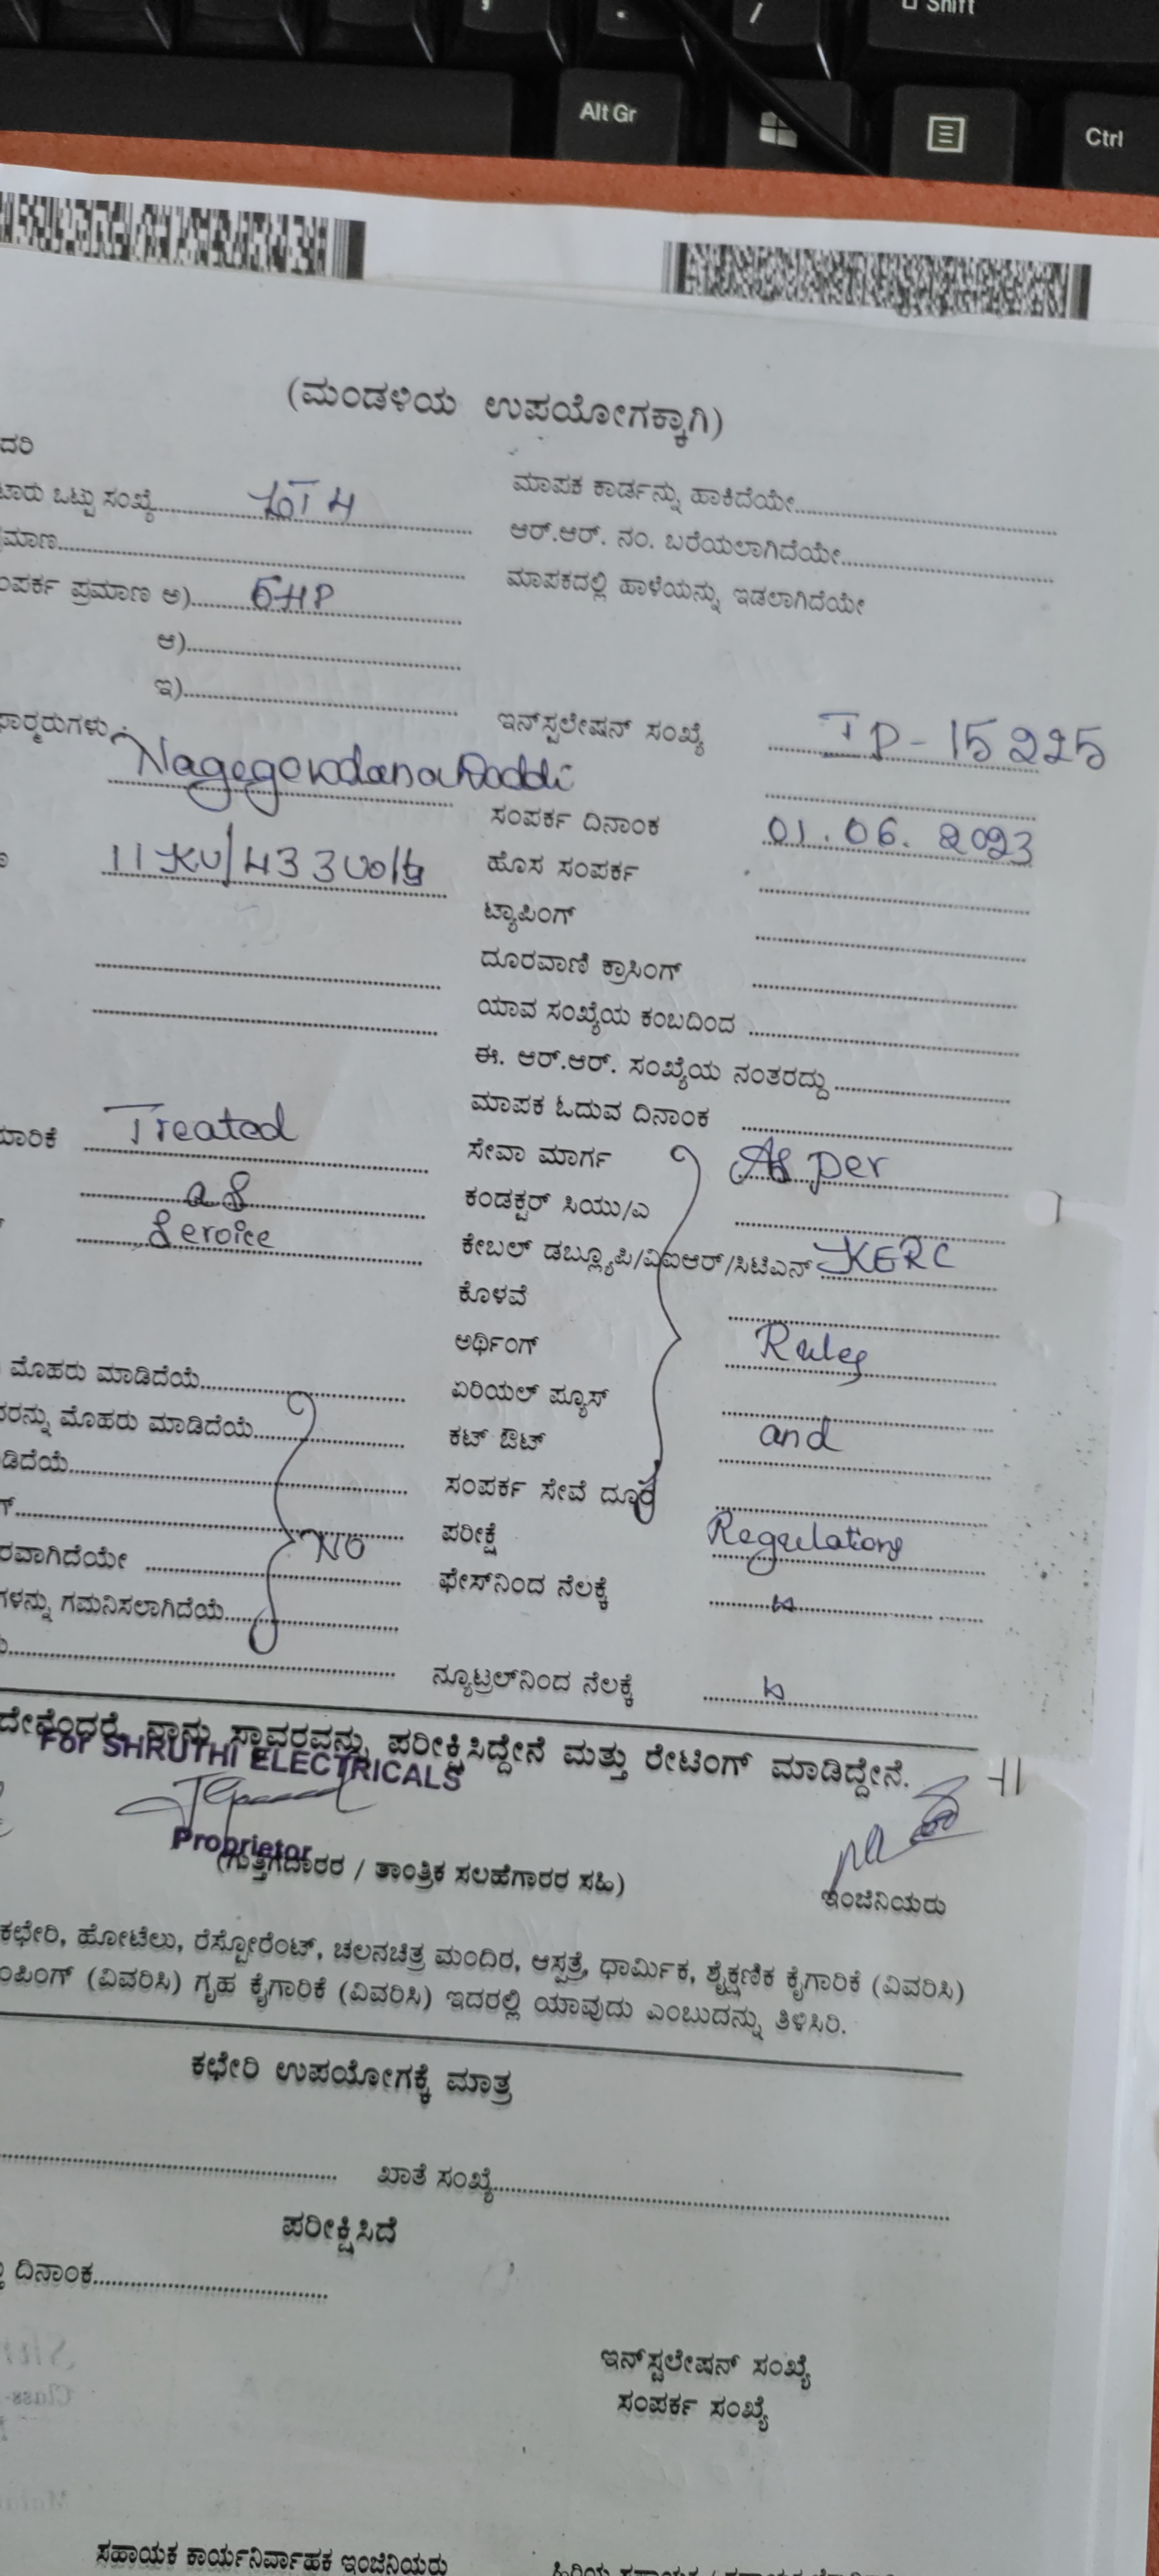 Shift
Alt Gr
Ctrl
(ಮಂಡಳಿಯ ಉಪಯೋಗಕ್ಕಾಗಿ)
ದರಿ
ಒಟ್ಟು ಸಂಖ್ಯೆ
ಮಾಪಕ ಕಾರ್ಡನ್ನು ಹಾಕಿದೆಯೇ
ಆರ್.ಆರ್. ನಂ. ಬರೆಯಲಾಗಿದೆಯೇ
ಮಾಪಕದಲ್ಲಿ ಹಾಳೆಯನ್ನು ಇಡಲಾಗಿದೆಯೇ
ಮಾಣ
ಪ್ರಮಾಣ ಅ) 5HP
ಆ)
ಇ)
ಇನ್‌ಸ್ಟಲೇಷನ್ ಸಂಖ್ಯೆ IP-15225
Nagegowdana Doddi
ಸಂಪರ್ಕ ದಿನಾಂಕ 01.06.2023
11 KV/433 Volts ಹೊಸ ಸಂಪರ್ಕ
ಟ್ಯಾಪಿಂಗ್
ದೂರವಾಣಿ ಕ್ರಾಸಿಂಗ್
ಯಾವ ಸಂಖ್ಯೆಯ ಕಂಬದಿಂದ
ಈ. ಆರ್.ಆರ್. ಸಂಖ್ಯೆಯ ನಂತರದ್ದು
ಮಾಪಕ ಓದುವ ದಿನಾಂಕ
Treated ಸೇವಾ ಮಾರ್ಗ As per
as ಕಂಡಕ್ಟರ್ ಸಿಯು/ಎ
Service ಕೇಬಲ್ ಡಬ್ಲ್ಯೂಪಿ/ವಿಐಆರ್/ಸಿಟಿಎನ್ KERC
ಕೊಳವೆ
ಅರ್ಥಿಂಗ್ Rules
ಮೊಹರು ಮಾಡಿದೆಯೆ ಏರಿಯಲ್ ಫ್ಯೂಸ್
ಮೊಹರು ಮಾಡಿದೆಯೆ ಕಟ್ ಔಟ್ and
ಡಿದೆಯೆ ಸಂಪರ್ಕ ಸೇವೆ ದೂರ
NO ಪರೀಕ್ಷೆ Regulations
ರವಾಗಿದೆಯೇ ಫೇಸ್‌ನಿಂದ ನೆಲಕ್ಕೆ
ಗಳನ್ನು ಗಮನಿಸಲಾಗಿದೆಯೆ
ನ್ಯೂಟ್ರಲ್‌ನಿಂದ ನೆಲಕ್ಕೆ
ದೇನೆಂದರೆ, ನಾನು ಸ್ಥಾವರವನ್ನು ಪರೀಕ್ಷಿಸಿದ್ದೇನೆ ಮತ್ತು ರೇಟಿಂಗ್ ಮಾಡಿದ್ದೇನೆ.
For SHRUTHI ELECTRICALS
Proprietor
(ಗುತ್ತಿಗೆದಾರರ / ತಾಂತ್ರಿಕ ಸಲಹೆಗಾರರ ಸಹಿ)
ಇಂಜಿನಿಯರು
ಕಛೇರಿ, ಹೋಟೆಲು, ರೆಸ್ಟೋರೆಂಟ್, ಚಲನಚಿತ್ರ ಮಂದಿರ, ಆಸ್ಪತ್ರೆ, ಧಾರ್ಮಿಕ, ಶೈಕ್ಷಣಿಕ ಕೈಗಾರಿಕೆ (ವಿವರಿಸಿ)
ಂಪಿಂಗ್ (ವಿವರಿಸಿ) ಗೃಹ ಕೈಗಾರಿಕೆ (ವಿವರಿಸಿ) ಇದರಲ್ಲಿ ಯಾವುದು ಎಂಬುದನ್ನು ತಿಳಿಸಿರಿ.
ಕಛೇರಿ ಉಪಯೋಗಕ್ಕೆ ಮಾತ್ರ
ಖಾತೆ ಸಂಖ್ಯೆ
ಪರೀಕ್ಷಿಸಿದೆ
ದಿನಾಂಕ
ಇನ್‌ಸ್ಟಲೇಷನ್ ಸಂಖ್ಯೆ
ಸಂಪರ್ಕ ಸಂಖ್ಯೆ
ಸಹಾಯಕ ಕಾರ್ಯನಿರ್ವಾಹಕ ಇಂಜಿನಿಯರು